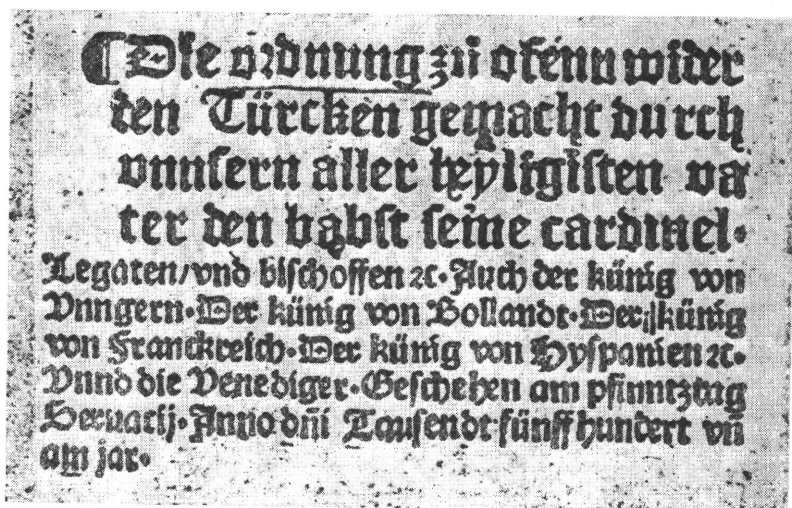 ¶ Die ordnung zů ofenn wider
den Türcken gemacht du rch
vnnsern aller heyligisten va
ter den babst seine cardinel.
Legaten/vnd bischoffen ꝛc. Auch der künig von
Vnngern. Der künig von Bollandt. Der künig
von Franckreich. Der künig von Hyspanien ꝛc.
Vnnd die Venediger. Geschehen am pfinntztag
Seruacij. Anno dn̄i Tausendt fünff hundert vn̄
am jar.